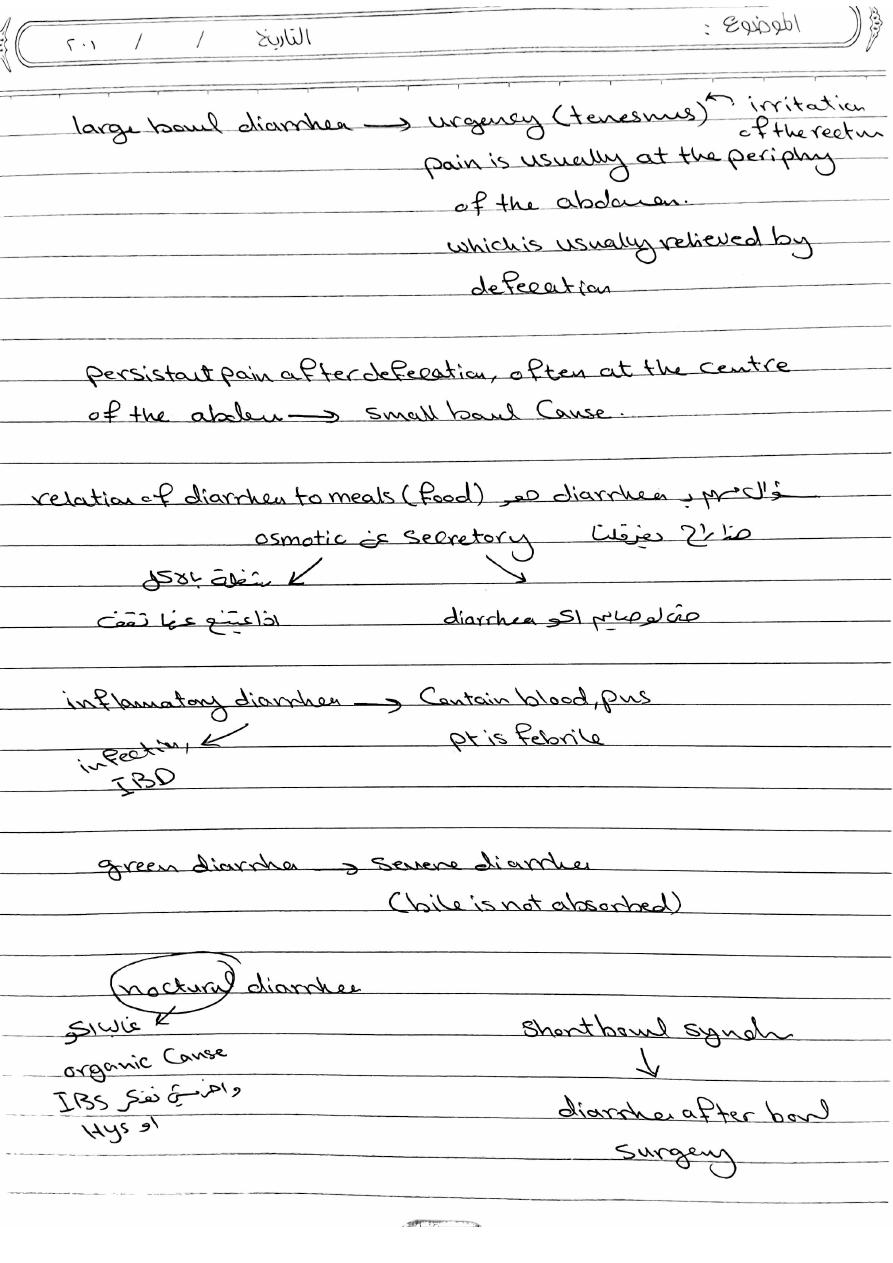 الموضوع : التاريخ / / ٢٠١
large bowl diarrhea → urgency (tenesmus) ← irritation
of the rectum
pain is usually at the periphy
of the abdomen.
which is usually relieved by
defecation
persistant pain after defecation, often at the centre
of the abdomen → small bowl Cause.
relation of diarrhea to meals (food) سؤال مهم بـ diarrhea
هذا راح يفرقلك secretory عن osmotic
متعلقة بالاكل
حتى لو صايم اكو diarrhea
اذا عنها تقف
inflamatory diarrhea → Contain blood, pus
pt is febrile
infection,
IBD
green diarrhea → Severe diarrhea
(bile is not absorbed)
noctural diarrhea
غالبا اكو
organic Cause
واخر شي نفكر IBS
او Hys
Short bowl syndr
↓
diarrhea after bowl
surgery